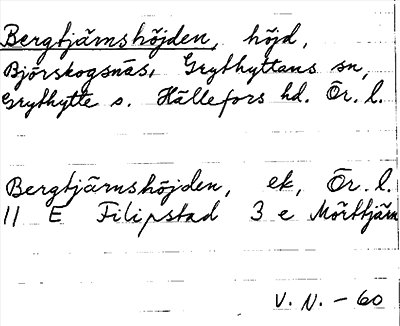 Bergtjärnshöjden, höjd,
Björskogsnäs, Grythyttans sn,
Grythytte o. Hällefors hd. Ör. l.
Bergtjärnshöjden, ek, Ör. l.
11 E Filipstad 3 e Mörttjärn
V. N. - 60